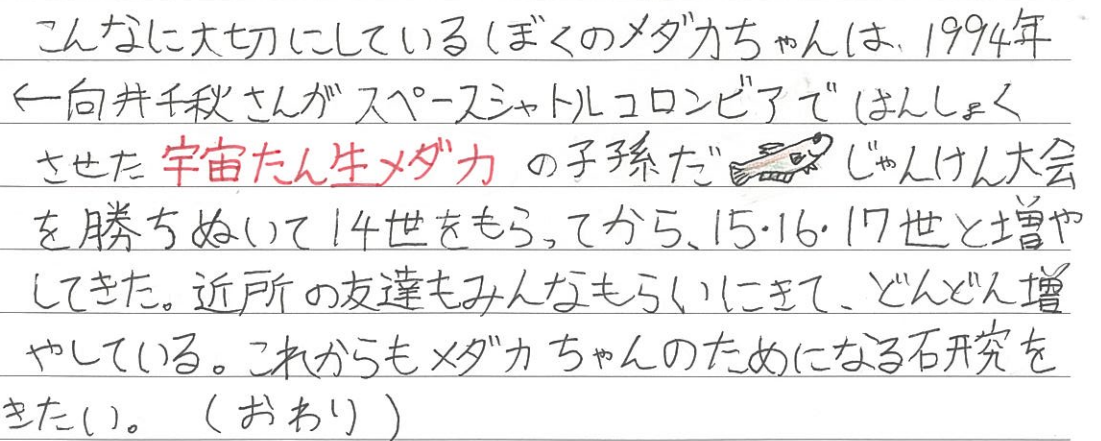 こんなに大切にしているぼくのメダカちゃんは、1994年
←向井千秋さんがスペースシャトルコロンビアではんしょく
させた宇宙たん生メダカの子孫だ じゃんけん大会
を勝ちぬいて14世をもらってから、15・16・17世と増や
してきた。近所の友達もみんなもらいにきて、どんどん増
やしている。これからもメダカちゃんのためになる研究を
きたい。（おわり）